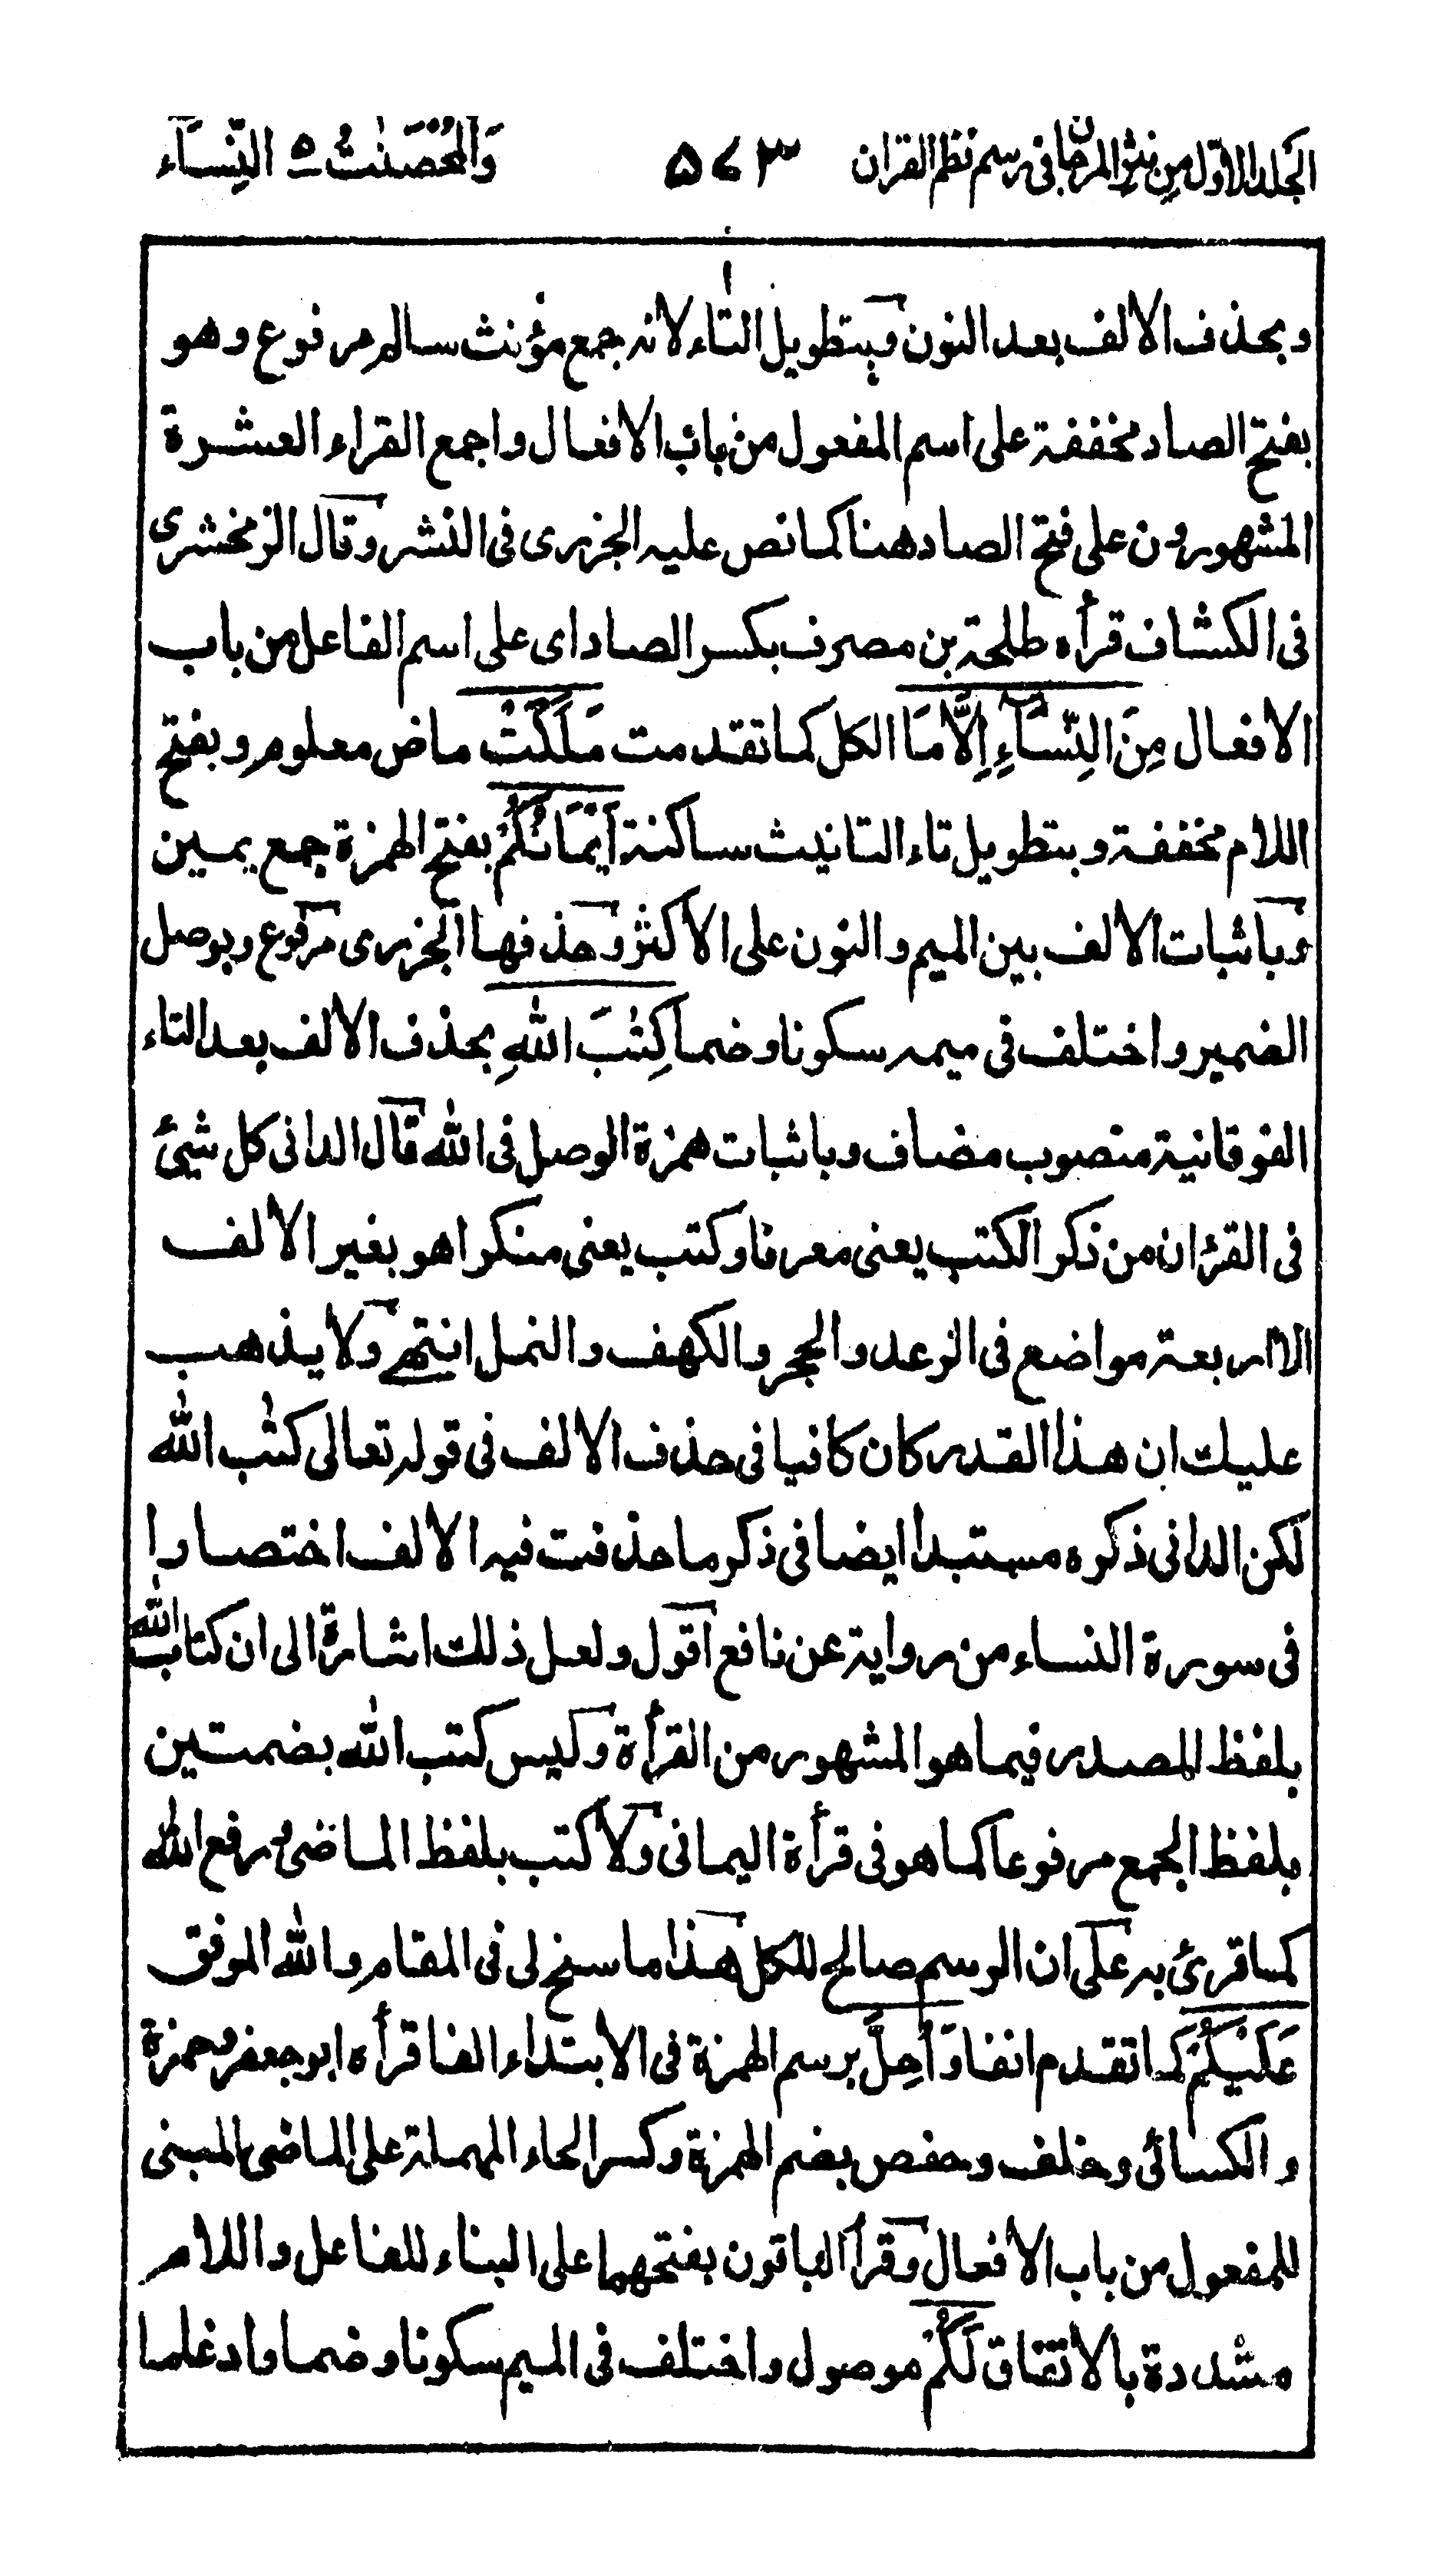 الجلد الاول من نثر المرجان فى رسم نظم القران ٥٧٣ وَالمُحْصَنٰتُ ٥ النِّسَآء
وبحذف الالف بعد النون وبتطويل التاء لانه جمع مؤنث سالم مرفوع وهو
بفتح الصاد مخففة على اسم المفعول من باب الافعال واجمع القراء العشرة
المشهورون على فتح الصاد هنا كما نص عليه الجزرى فى النشر وقال الزمخشرى
فى الكشاف قرأه طلحة بن مصرف بكسر الصاد اى على اسم الفاعل من باب
الافعال مِنَ النِّسَآءِ اِلَّا مَا الكل كما تقدمت مَلَكَتْ ماض معلوم وبفتح
اللام مخففة وبتطويل تاء التانيث ساكنة اَيْمَانُكُمْ بفتح الهمزة جمع يمين
وباثبات الالف بين الميم والنون على الاكثر وحذفها الجزرى مرفوع وبوصل
الضمير واختلف فى ميمه سكونا وضما كِتٰبَ اللّٰهِ بحذف الالف بعد التاء
الفوقانية منصوب مضاف وباثبات همزة الوصل فى اللّٰه قال الدانى كل شيئ
فى القرٰان من ذكر الكتب يعنى معرفا وكتب يعنى منكرا هو بغير الالف
الا اربعة مواضع فى الرعد والحجر والكهف والنمل انتهى ولا يذهب
عليك ان هذا القدر كان كافيا فى حذف الالف فى قوله تعالى كتٰب اللّٰه
لكن الدانى ذكره مستبدا ايضا فى ذكر ما حذفت فيه الالف اختصارا
فى سورة النساء من رواية عن نافع اقول ولعل ذلك اشارة الى ان كتاب اللّٰه
بلفظ المصدر فيما هو المشهور من القرأة وليس كتب اللّٰه بضمتين
بلفظ الجمع مرفوعا كما هو فى قرأة اليمانى ولا كتب بلفظ الماضى ورفع اللّٰه
كما قرئ به على ان الرسم صالح للكل هذا ما سنح لى فى المقام واللّٰه الموفق
عَلَيْكُمْ كما تقدم انفا وَاُحِلَّ برسم الهمزة فى الابتداء الفا قرأه ابو جعفر وحمزة
والكسائى وخلف وحفص بضم الهمزة وكسر الحاء المهملة على الماضى المبنى
للمفعول من باب الافعال وقرأ الباقون بفتحهما على البناء للفاعل واللام
مشددة بالاتفاق لَكُمْ موصول واختلف فى الميم سكونا وضما وادغاما